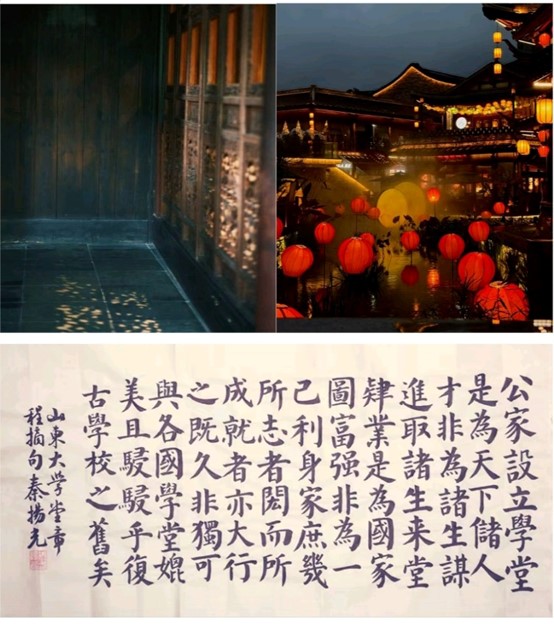 公家設立學堂
是為天下儲人
才非為諸生謀
進取諸生来堂
肄業是為國家
圖富强非為一
己利身家庶幾
所志者閎而所
成就者亦大行
之既久非獨可
與各國學堂媲
美且駸駸乎復
古學校之舊矣
山東大学堂章
程摘句秦揚光